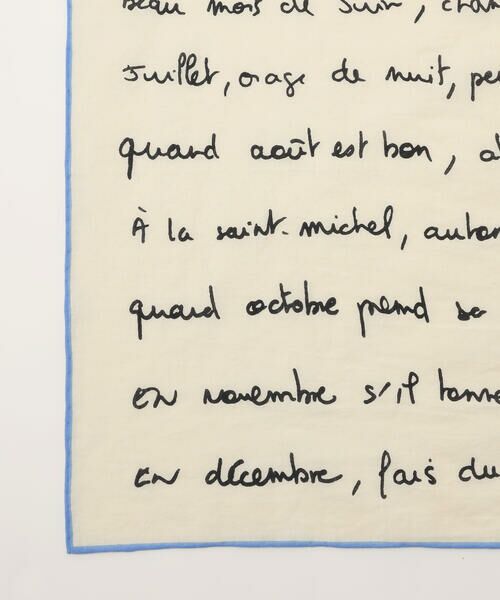 beau mois de Juin,
Juillet, orage de nuit,
quand août est bon,
À la saint-michel,
quand octobre prend sa
en novembre s'il tonne
en décembre, fais du